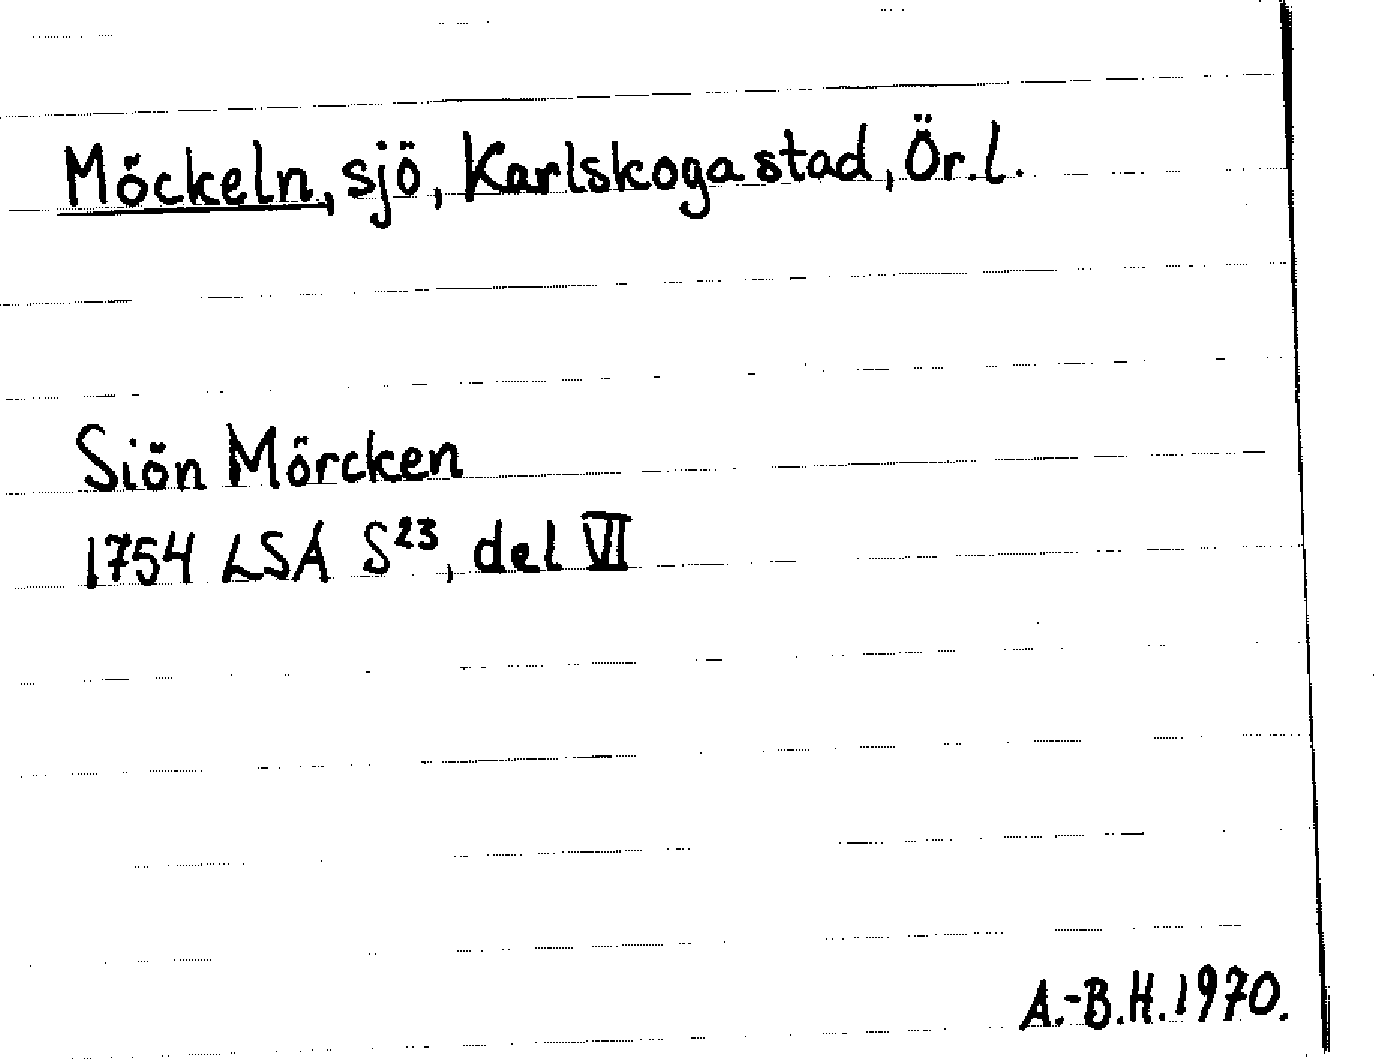 Möckeln, sjö, Karlskoga stad, Ör.l.
Siön Mörcken
1754 LSA S²³, del VI
A.-B.H. 1970.